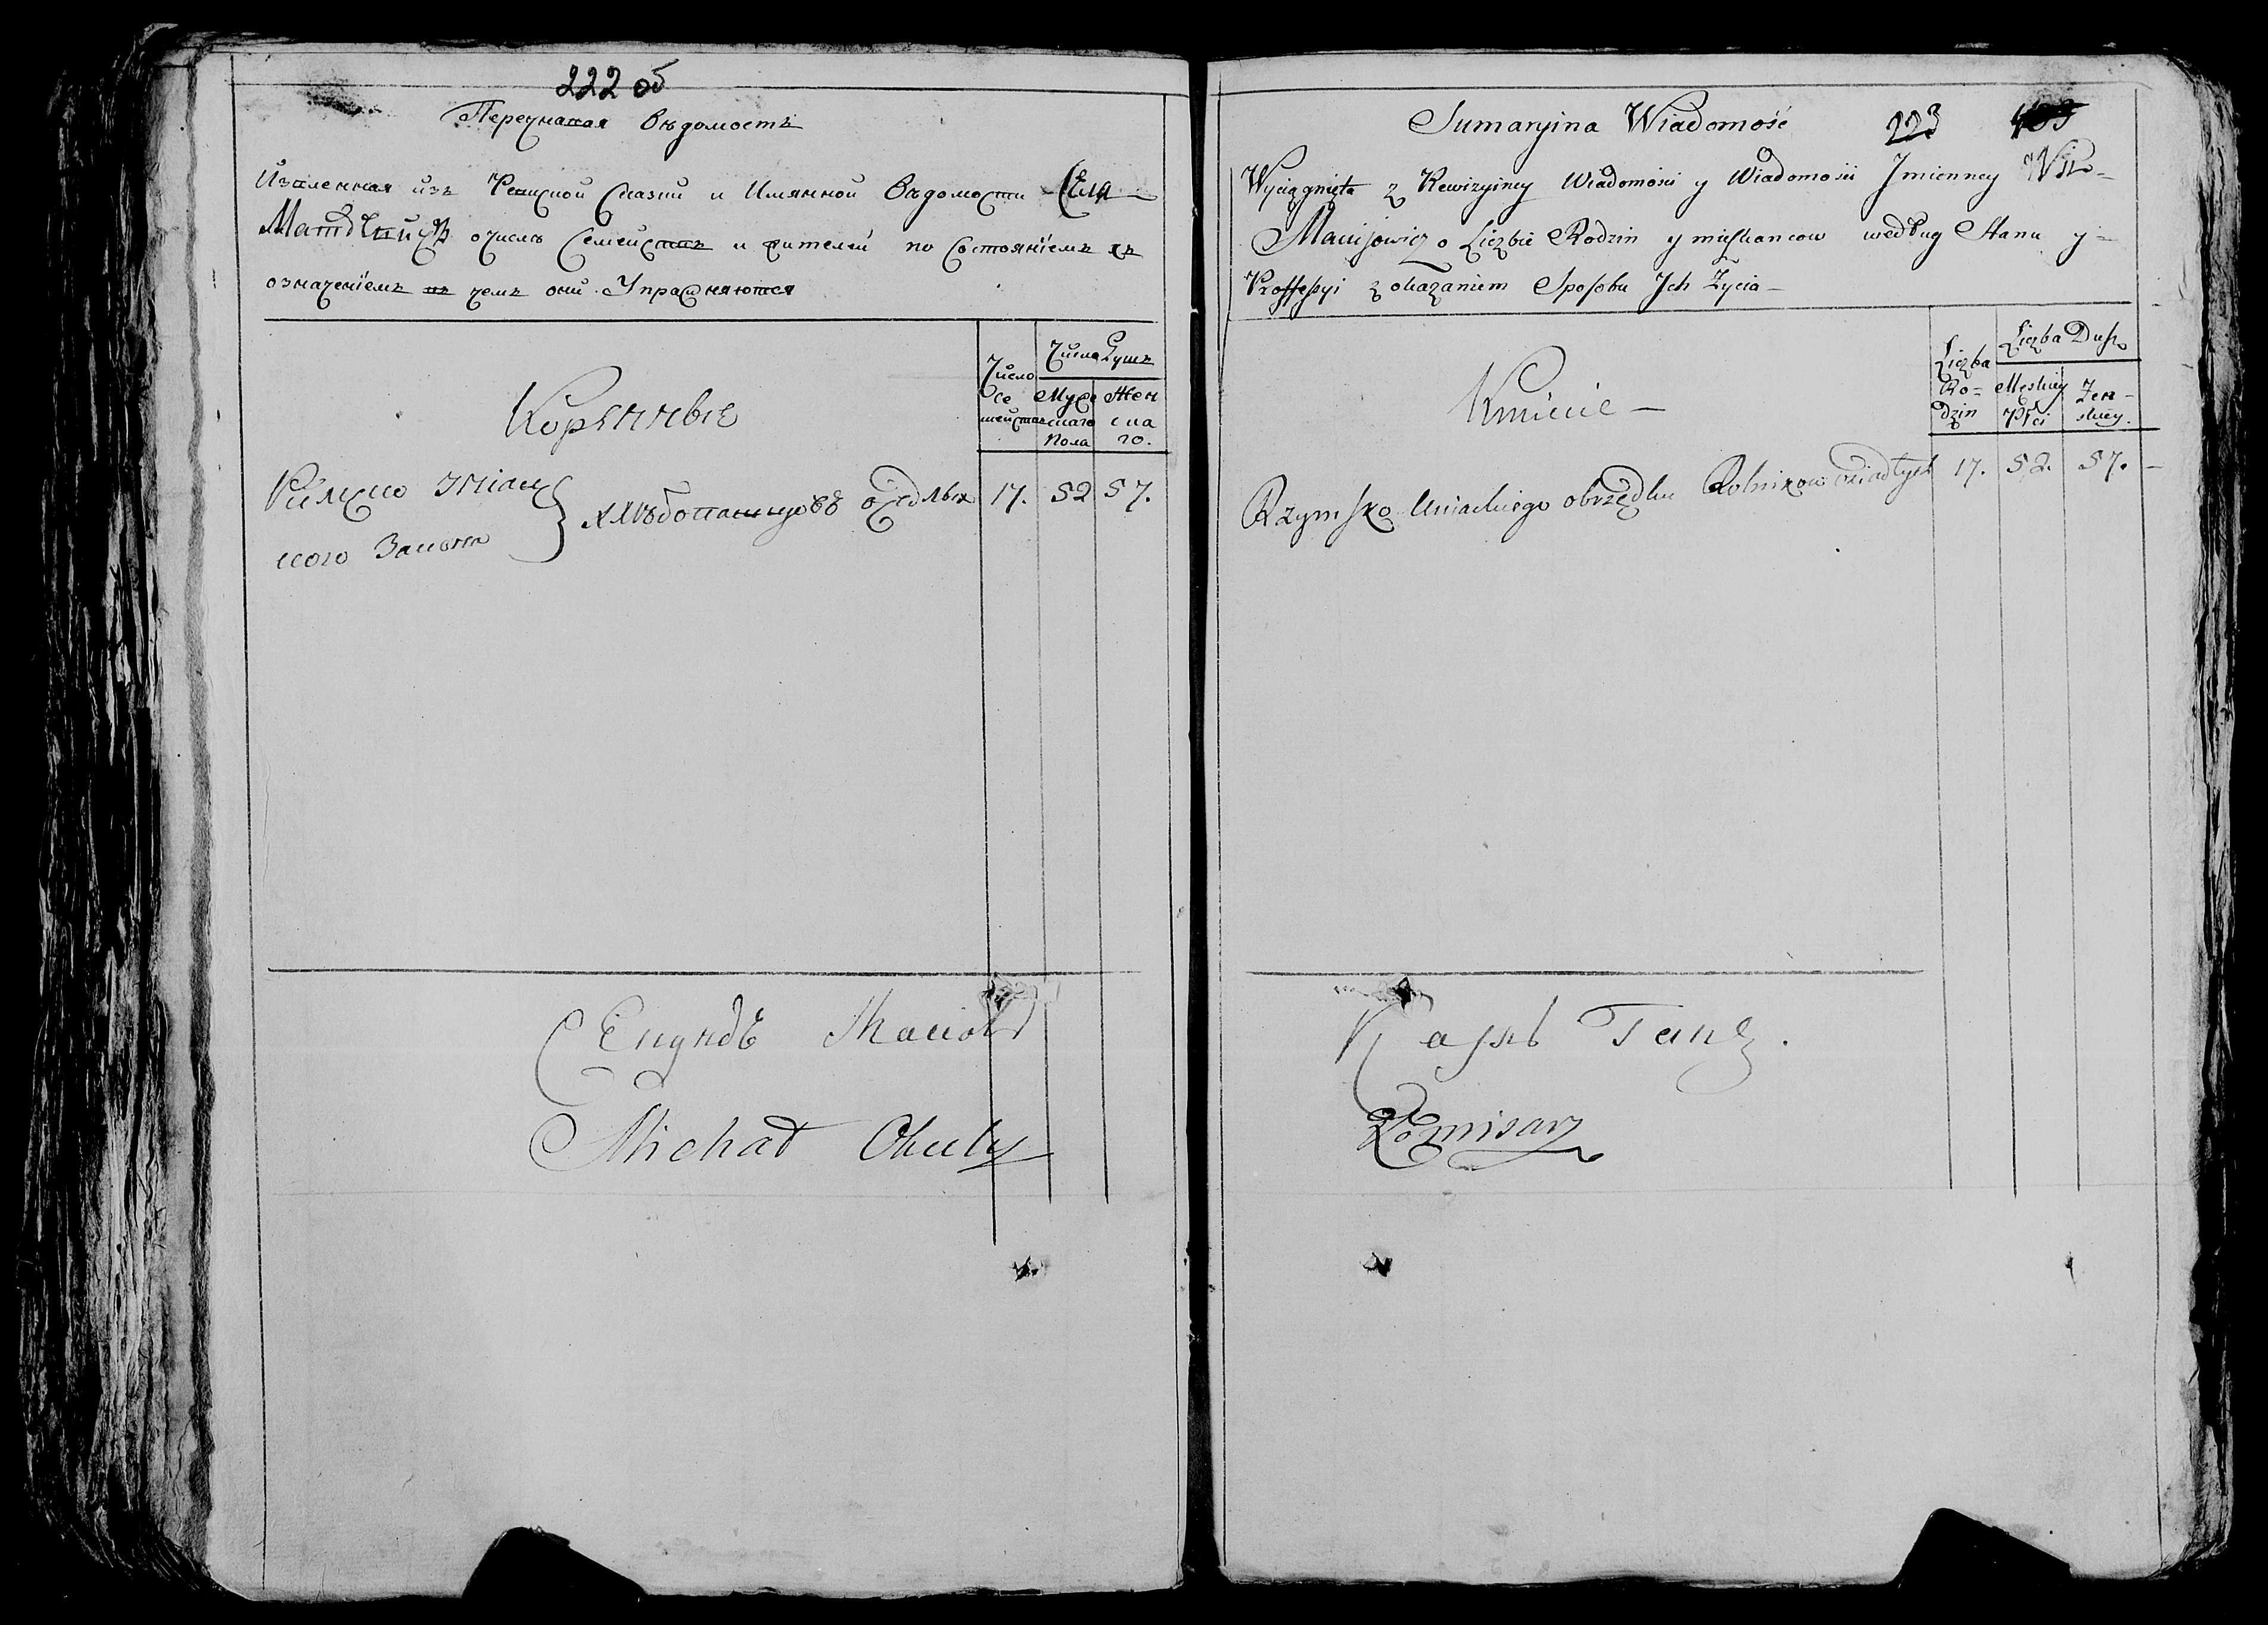 222 об
Перечневая Вѣдомость
Извлеченная изъ Ревиской Сказки и Имянной Вѣдомости Села
очислѣ Семействъ и жителей по Состояніемъ съ
означеніемъ въ чемъ они Упражняются
Число Се мействъ
Число Душъ
Мужескаго Пола
Женскаго.
Коренные
Римско Уніацкого Закона } хлѣбопашцовъ оседлых 17. 52 57.
Michał Okuly
Sumaryina Wiadomość 223
Wyciągnięta z Rewizyiney Wiadomości y Wiadomości Jmienney Wsi=
Maciejowicz o Liczbie Rodzin y mieszkancow według Stanu y=
Proffessyi z okazaniem Sposobu Jch Życia—
Liczba Ro=dzin
Liczba Dusz
Męskiey Płci
Żen-skiey.
Kmiecie—
Rzymsko Uniackiego obrzędku Rolnikow osiadłych 17. 52. 57.—
Карлъ Ганъ.
Komisarz